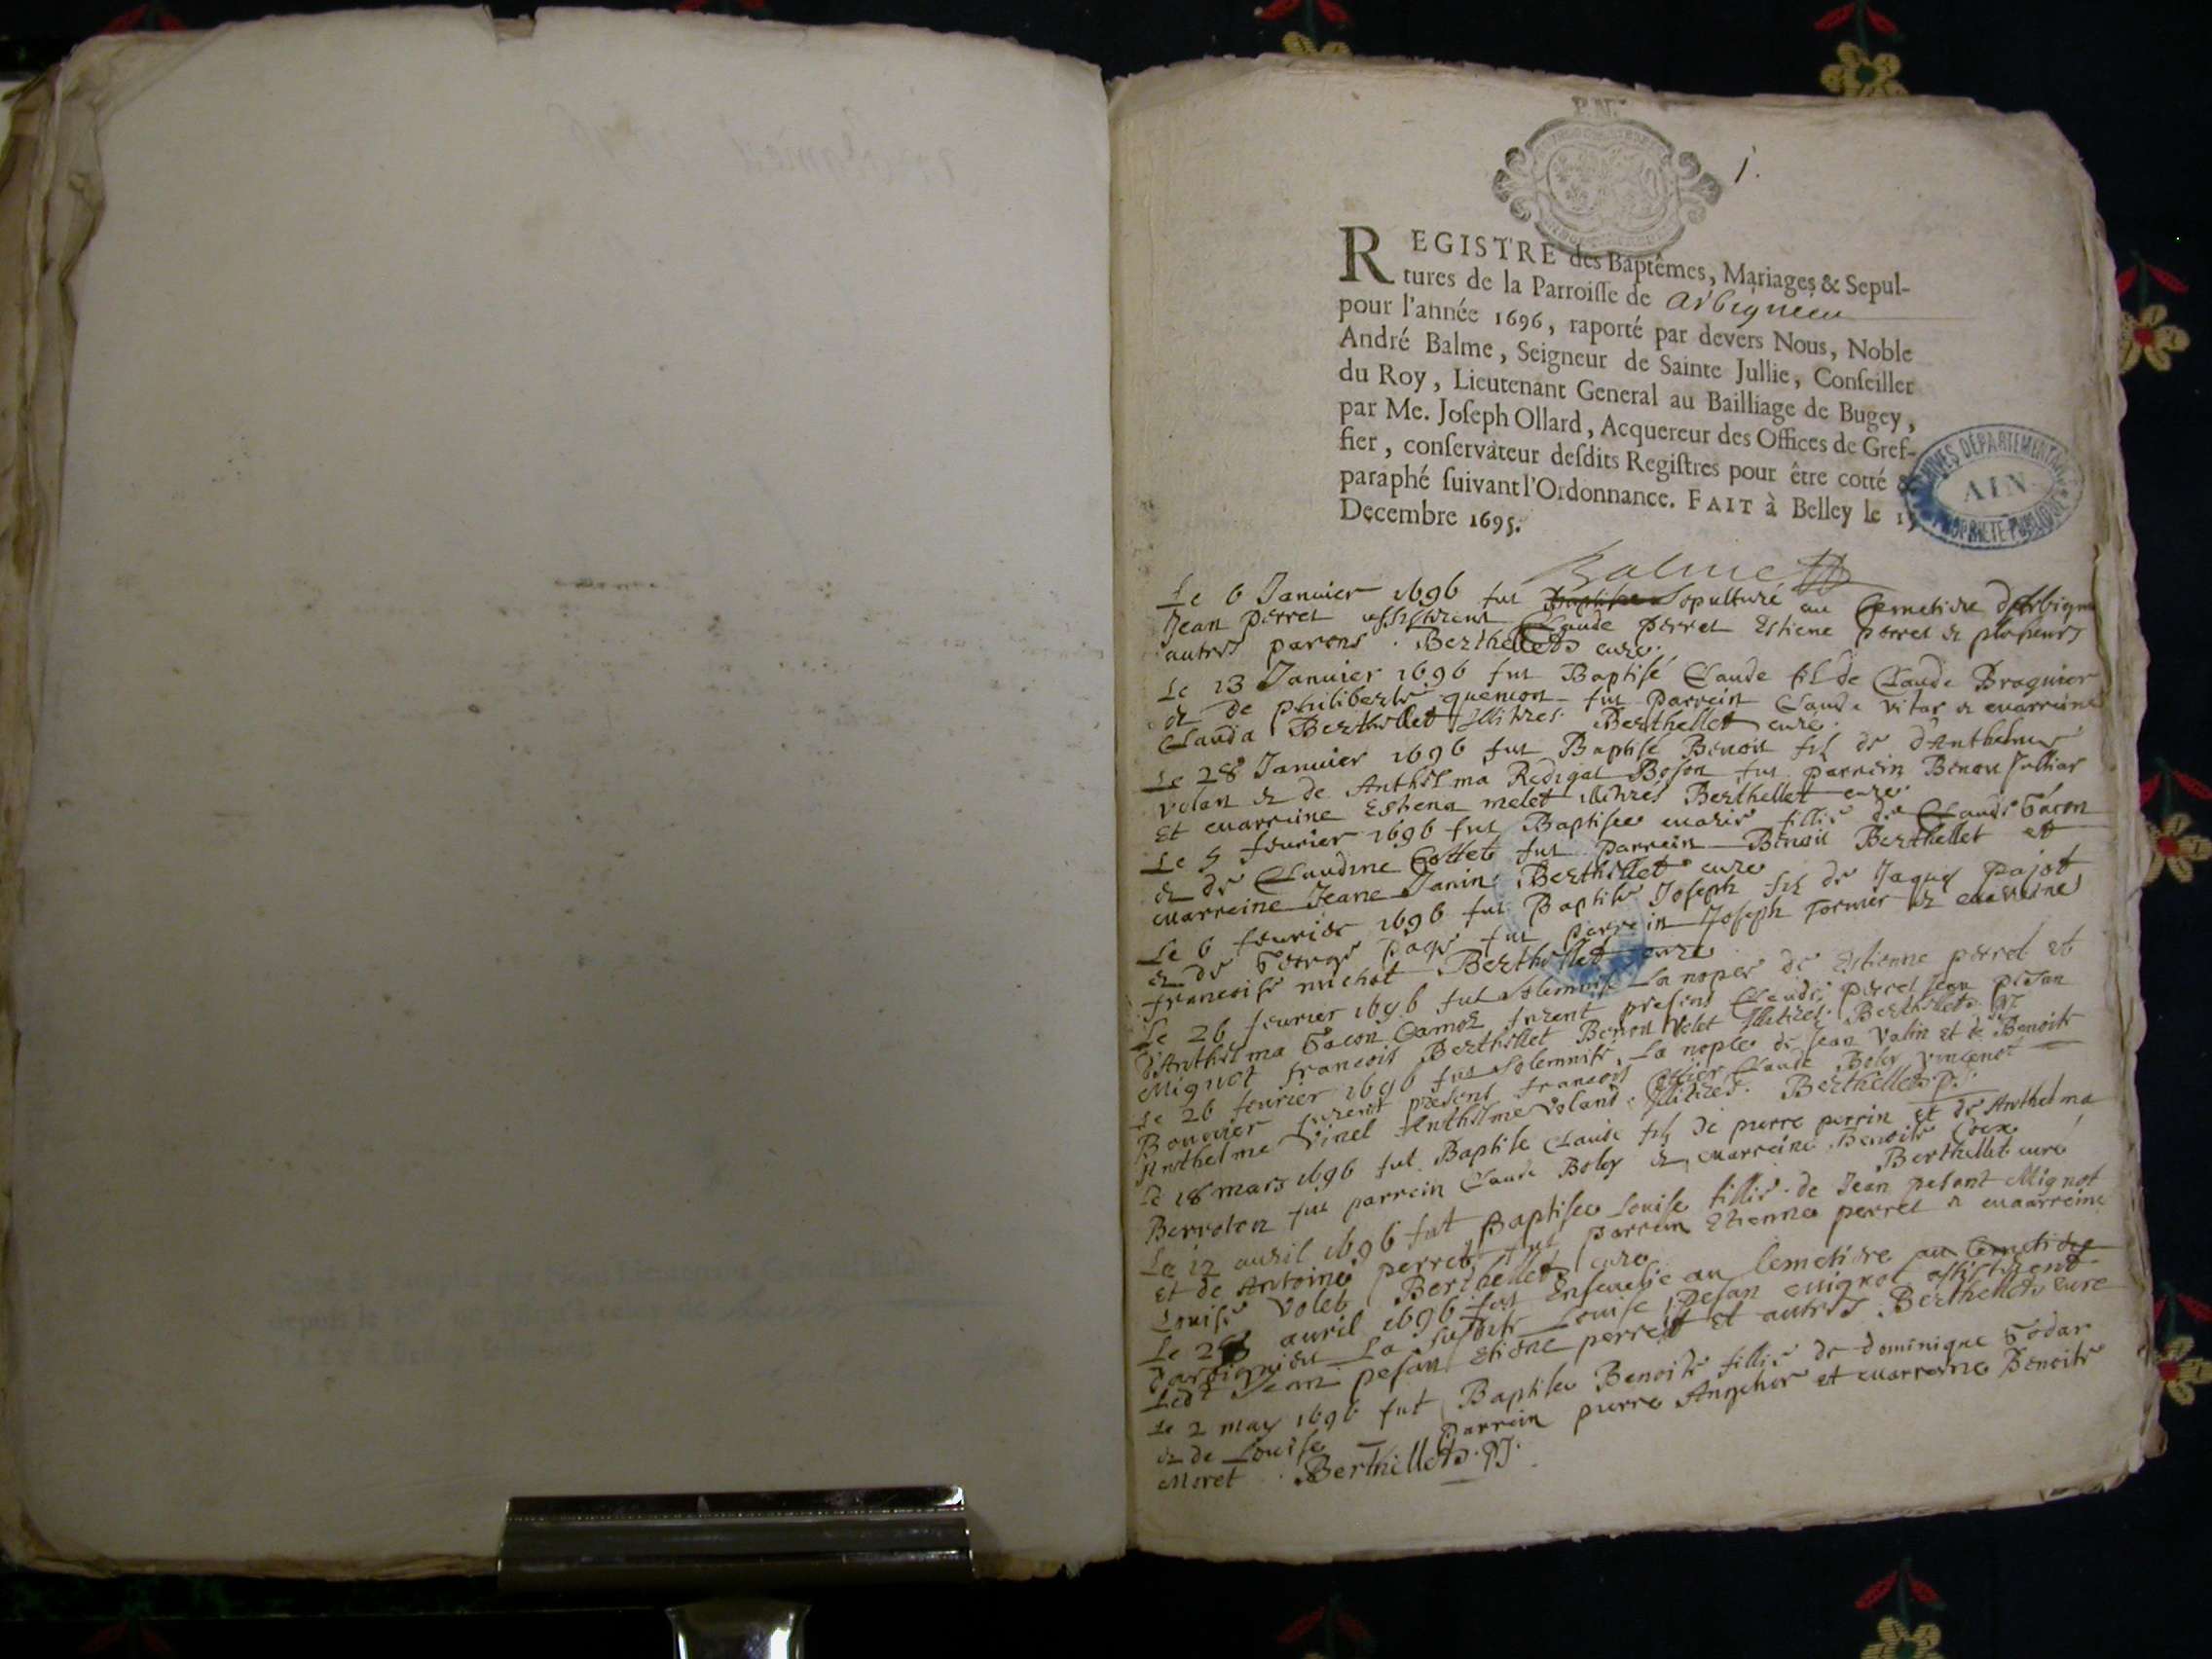 1.
REGISTRE des Baptêmes, Mariages & Sepul-
tures de la Parroisse de Arbignieu
pour l'année 1696, raporté par devers Nous, Noble
André Balme, Seigneur de Sainte Jullie, Conseiller
du Roy, Lieutenant General au Bailliage de Bugey,
par Me. Joseph Ollard, Acquereur des Offices de Gref-
fier, conservateur desdits Registres pour être cotté &
paraphé suivant l'Ordonnance. FAIT à Belley le
Decembre 1695.
ARCHIVES DÉPARTEMENTALES
AIN
PROPRIÉTÉ PUBLIQUE
Balme
Le 6 Janvier 1696 fut Sepulturé au Cemetiere
Jean perret assisterent Claude perret Estiene perret & plusieurs
autres parens. Berthellet curé.
Le 13 Janvier 1696 fut Baptisé Claude fils de Claude Broquier
& de philiberte quenion fut parrein Claude vitar & marreine
Clauda Berthellet Illitrés. Berthellet curé.
Le 28 Janvier 1696 fut Baptisé Benoit fils de d'Anthelme
volan & de Anthelma Redigat Boson fut parrein Benoit Julliar
Et marreine Estiena melet illitrés Berthellet curé
Le 5 fevrier 1696 fut Baptisée marie fillie de Claude Gacon
& de Claudine Cottet fut parrein Benoit Berthellet et
marreine Jeane Janin. Berthellet curé
Le 6 fevrier 1696 fut Baptisé Joseph fils de Jaques pajot
& de George page fut parrein Joseph Fornier & marreine
francoise michot Berthellet curé
Le 26 fevrier 1696 fut solemnisé La nopce de Estienne perret et
d'Anthelma Gacon Camoz furent presens Claude perret Jean pesan
Mignot francois Berthellet Benoit Volet Illitrés. Berthellet
Le 26 fevrier 1696 fut solemnisé La nopce de Jean Valin et de Benoite
Bouvier furent presens francois Cottier Claude Boley vincenot
Anthelme Vinet Anthelme voland Illitrés. Berthellet
Le 18 mars 1696 fut Baptisé Claude fils de pierre perrin et de Anthelma
Berroton fut parrein Claude Boley & marreine Benoite
Berthellet curé
Le 12 avril 1696 fut Baptisée Louise fillie de Jean pesant Mignot
et de Antoine perret, fut parrein Etienne perret & marreine
Louise Volet Berthellet curé
Le avril 1696 fut Ensevelie au Cemetiere au Cemetiere
d'arbignieu La susdite Louise pesan mignot assisterent
Ledt Jean pesan Etiene perret et autres Berthellet curé
Le 2 may 1696 fut Baptisée Benoite fillie de dominique Godar
& de Louise — parrein pierre Angelier et marreine Benoite
Moret. Berthellet.